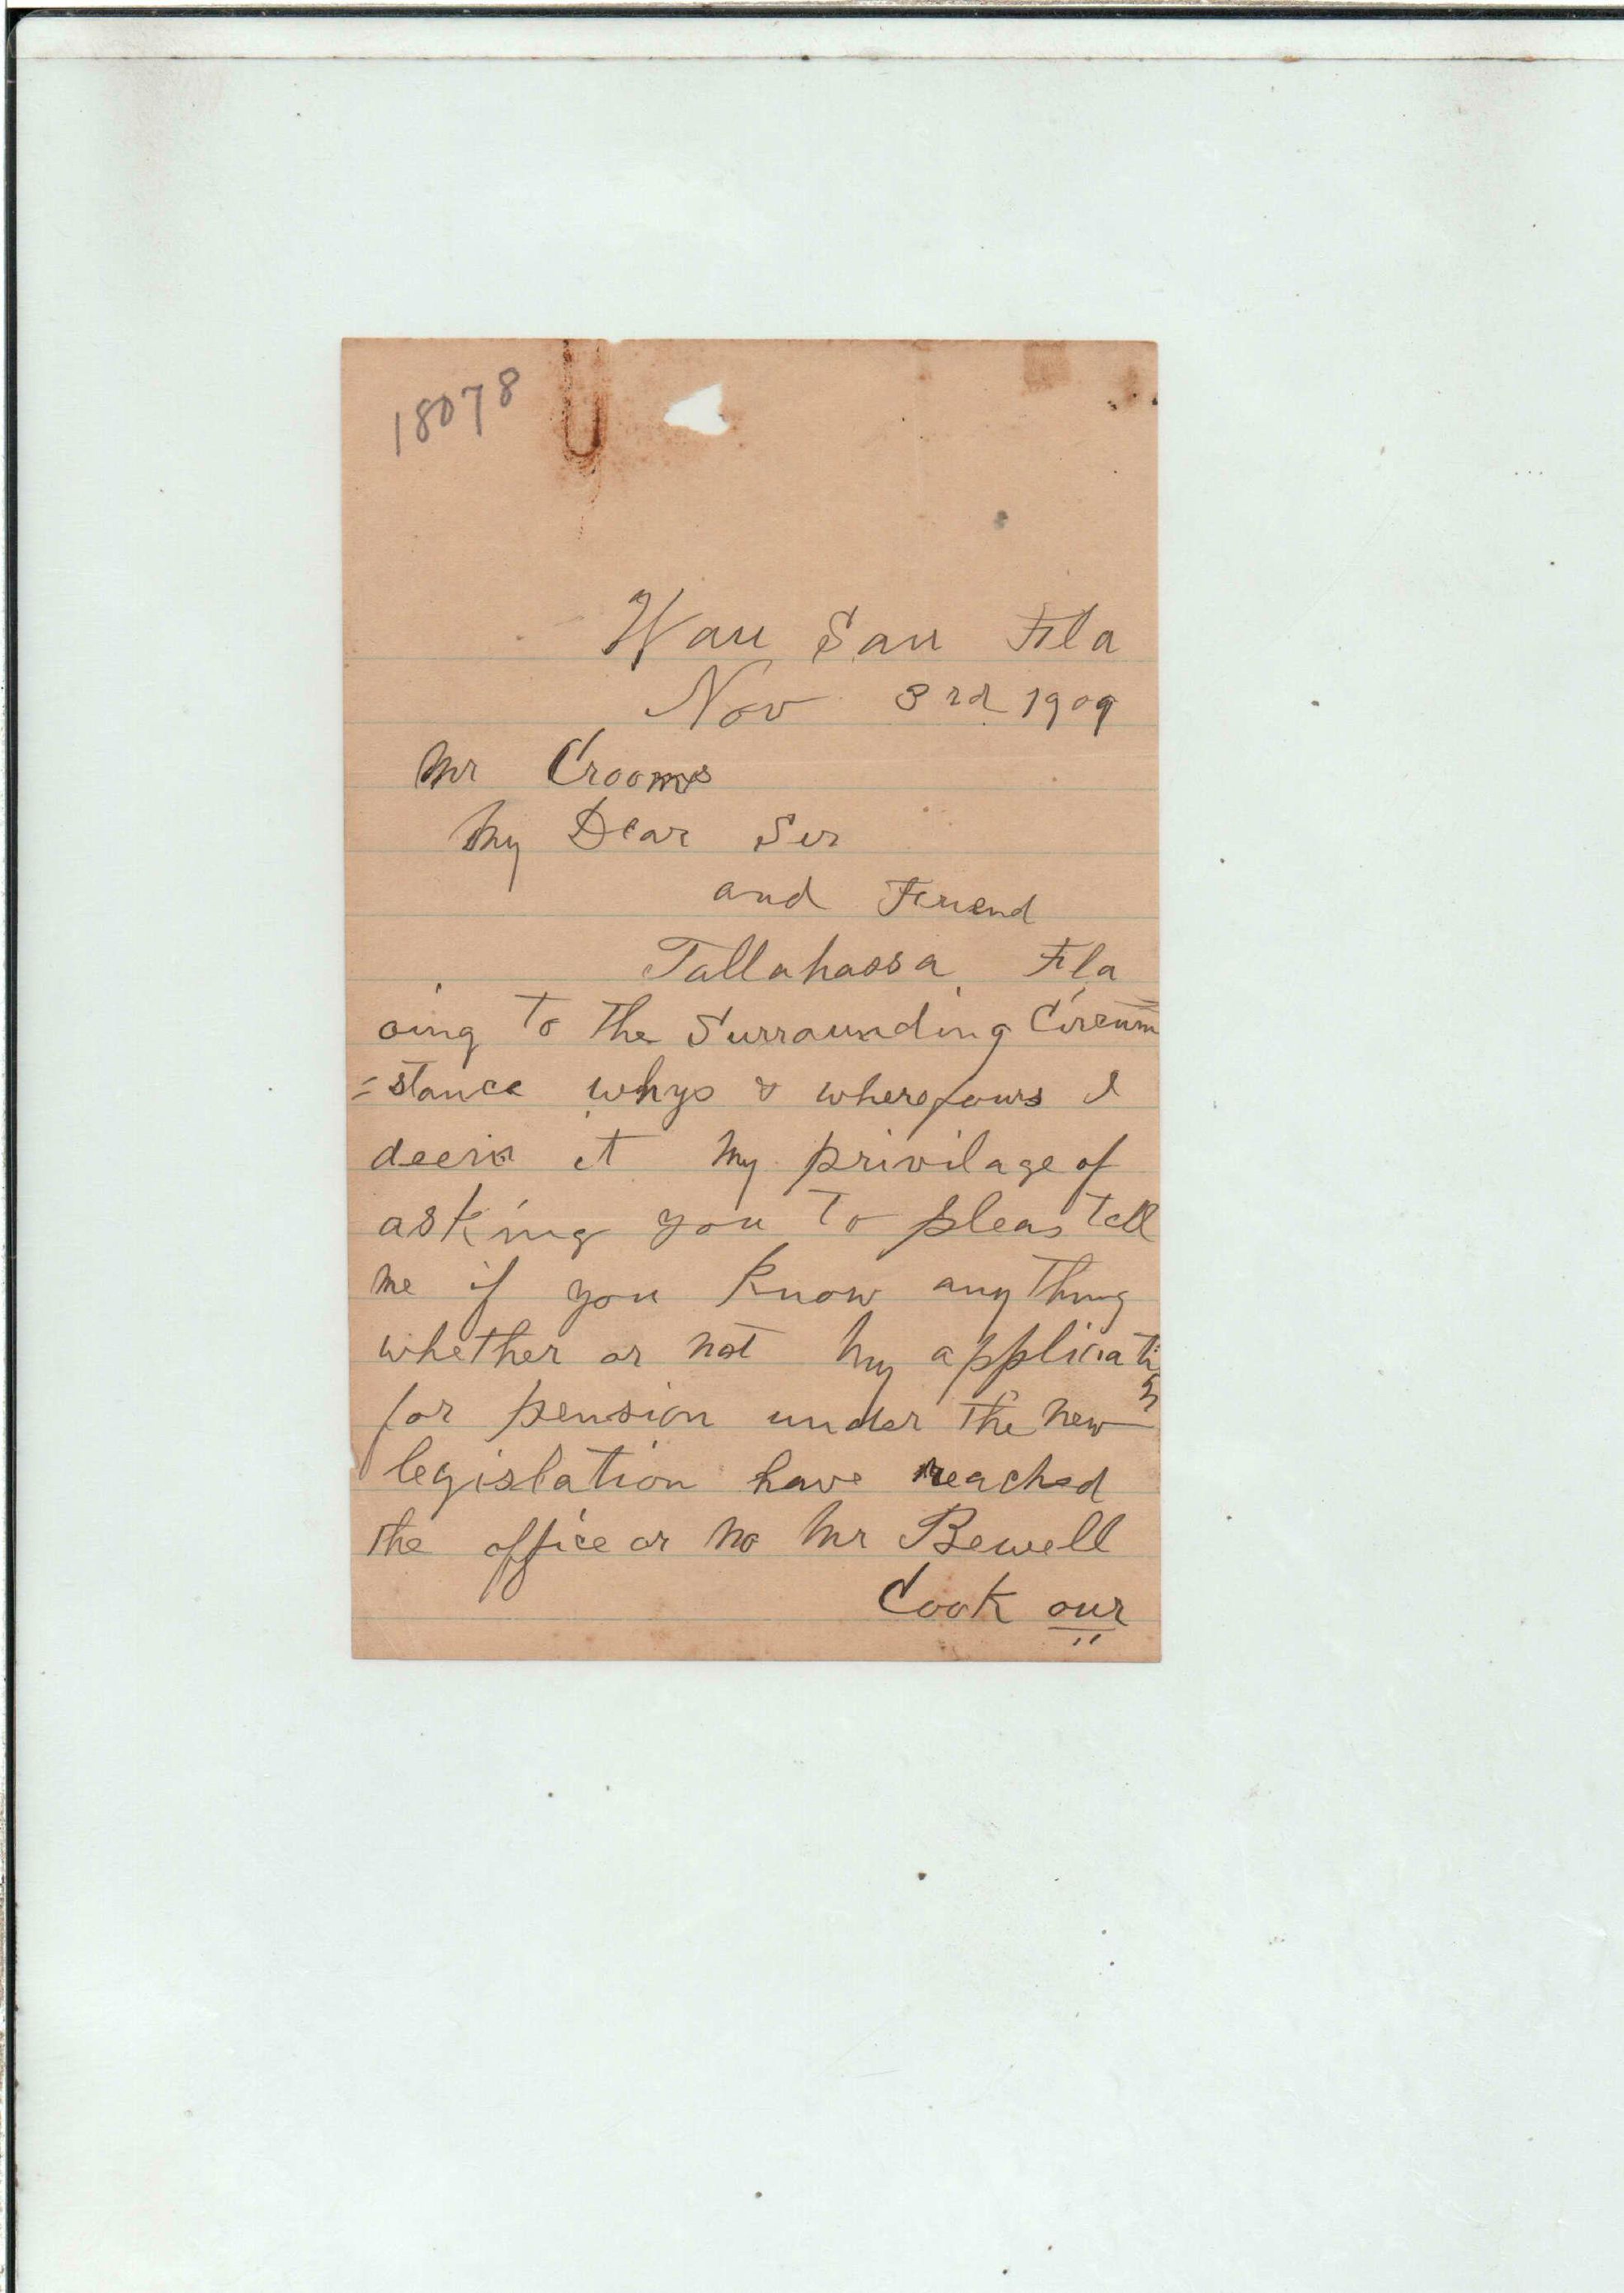 18078
Wau Sau Fla
Nov 3rd 1909
Mr Crooms
My Dear Ser
and Freiend
Tallahassa Fla
oing to the Surraunding Circum
=stance whys & wherefours I
deem it my privilage of
asking you to pleas tell
me if you know any thing
whether or not my application
for pension under the new
legislation have reached
the office or no Mr Bewell
Cook our